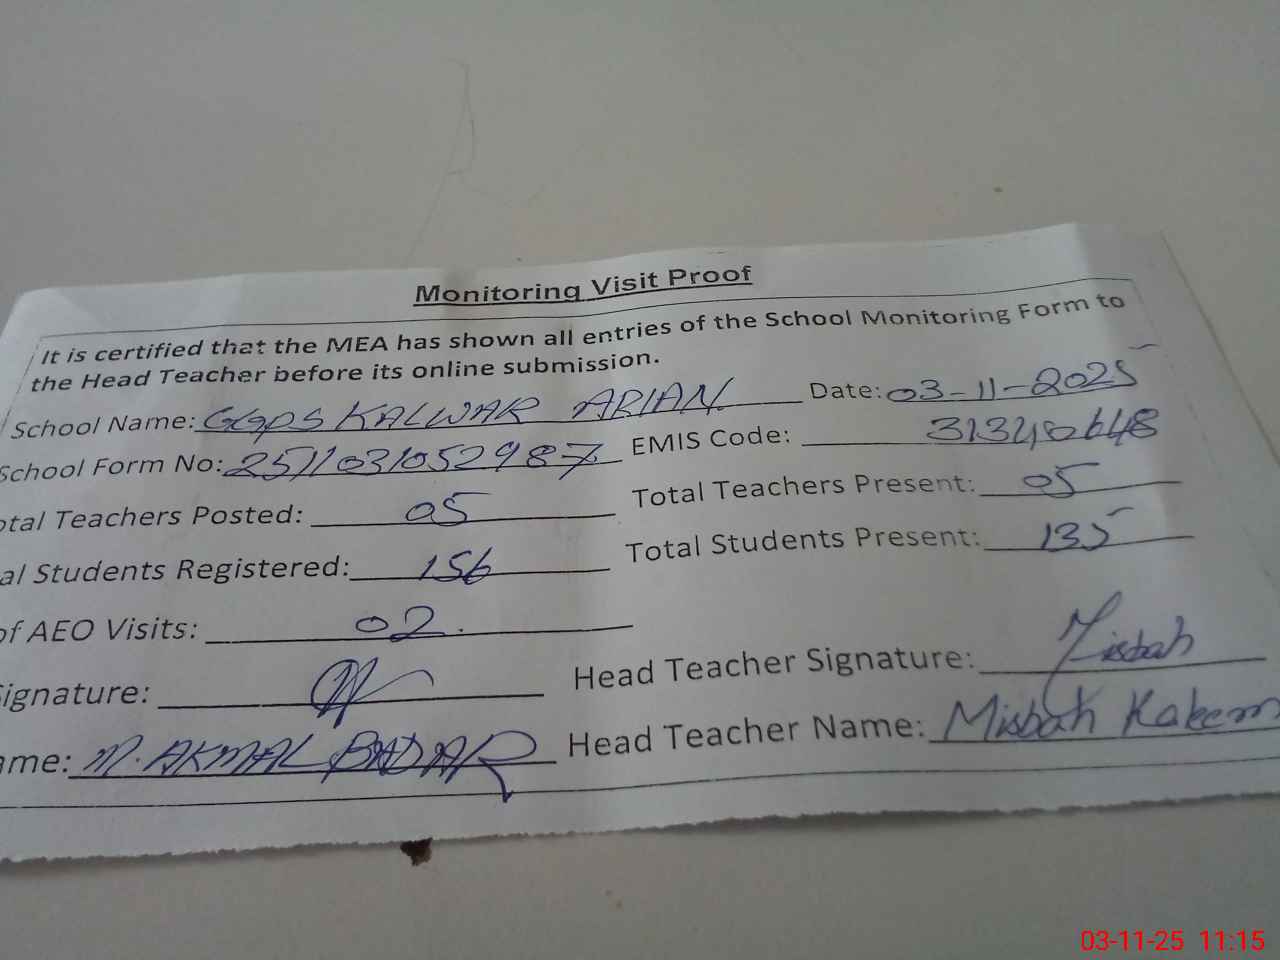 Monitoring Visit Proof
It is certified that the MEA has shown all entries of the School Monitoring Form to
the Head Teacher before its online submission.
School Name: GGPS KALWAR ARIAN. Date: 03-11-2025
School Form No: 2511031052987 EMIS Code: 31340648
otal Teachers Posted: 05 Total Teachers Present: 05
al Students Registered: 156 Total Students Present: 135
of AEO Visits: 02.
Signature: Head Teacher Signature: Misbah
ame: M. AKMAL BADAR Head Teacher Name: Misbah Kaleem
03-11-25 11:15